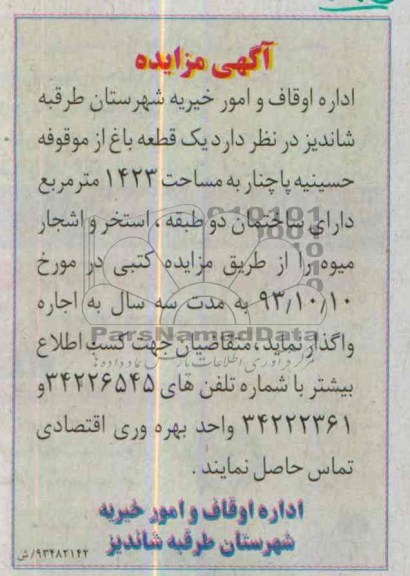 آگهی مزایده
اداره اوقاف و امور خیریه شهرستان طرقبه
شاندیز در نظر دارد یک قطعه باغ از موقوفه
حسینیه پاچنار به مساحت ۱۴۲۳ مترمربع
داراي ساختمان دو طبقه ، استخر و اشجار
میوه را از طریق مزایده کتبی در مورخ
۹۳/۱۰/۱۰ به مدت سه سال به اجاره
واگذار نماید، متقاضیان جهت کسب اطلاع
بیشتر با شماره تلفن های ۳۴۲۲۶۵۴۵ و
۳۴۲۲۲۳۶۱ واحد بهره وری اقتصادی
تماس حاصل نمایند .
اداره اوقاف و امور خیریه
شهرستان طرقبه شاندیز
۹۳۴۸۲۱۴۲/ش
ParsNamadData